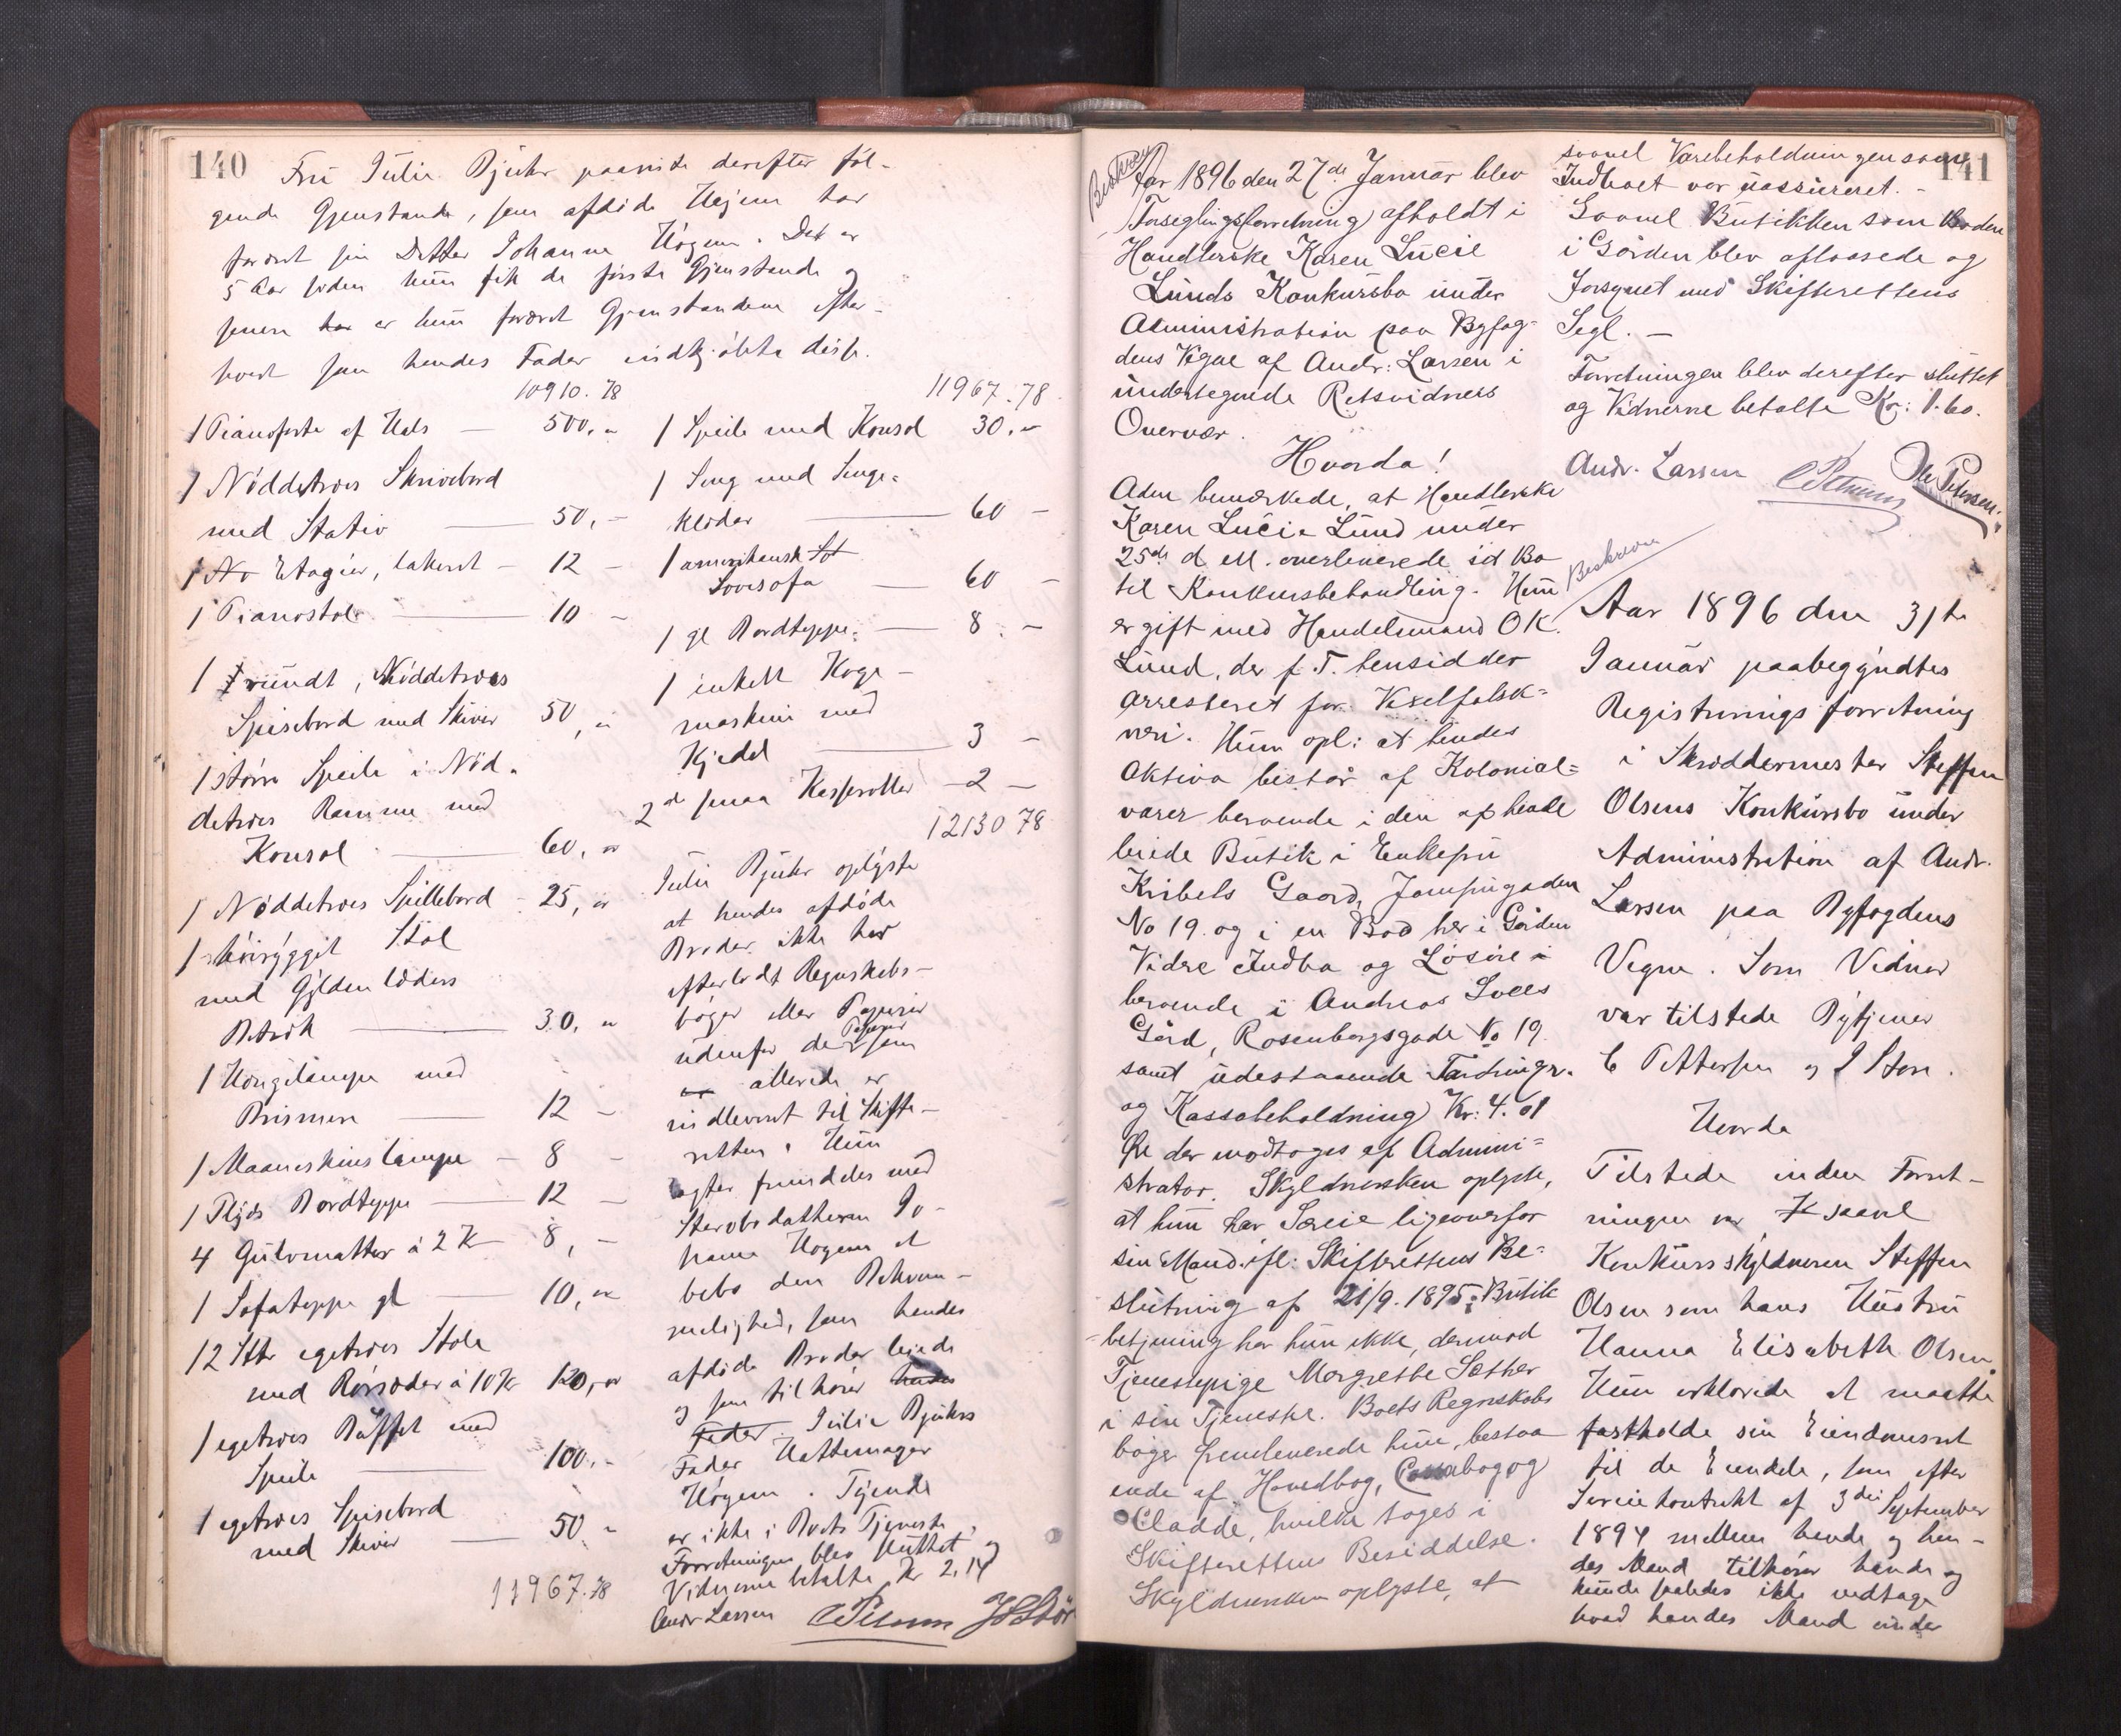 140
Fru Julie Bjuhr paaviste derefter føl-
gende Gjenstande, som afdøde Høgem har
foræret sin Datter Johanne Høgem. Det er
5 Aar siden hun fik de første Gjenstande og
senere har er hun foræret Gjenstandene efter-
hvert som hendes Fader indkjøbte disse.
10910.78
1 Pianoforte af Hals — 500,"
1 Nøddetræs Skrivebord
med Stativ — 50,-
1 No Etagier, lakeret - 12 -
1 Pianostol — 10 -
1 rundt, Nøddetræs
Spisebord med Skiver 50,"
1 større Speile i Nød-
detræs Ramme med
Konsol — 60,"
1 Nøddetræs Spillebord - 25,"
1 høirygget Stol
med Gyldenlæders
Betræk — 30,"
1 Hængelampe med
Prismer — 12 -
1 Maaneskinslampe — 8 -
1 Plyds Bordteppe — 12 -
4 Gulvmatter à 2 K 8,-
1 Sofateppe gl — 10,"
12 Stkr egetræs Stole
med Rørsæder à 10 Kr 120,"
1 egetræs Buffet med
Speile — 100.-
1 egetræs Spisebord
med Skiver — 50 "
11967.78
11967.78
1 Speile med Konsol 30."
1 Seng med Senge-
klæder — 60 -
1 amerikansk
Sovesofa — 60 -
1 gl Bordteppe — 8.-
1 enkelt Koge-
maskine med
Kjedel — 3 -
2 smaa Kasseroller — 2 —
12130 78
Julie Bjuhr oplyste
at hendes afdøde
Broder ikke har
efterladt Regnskabs-
bøger eller Papirer
udenfor de Papirer som
allerede er
indleveret til Skifte-
retten. Hun
agter fremdeles med
Stervbodatteren Jo-
hanne Høgem at
bebo den Bekvem-
melighed, som hendes
afdøde Broder leiede
og som tilhører hendes
Fader Julie Bjuhrs
Fader Hattemager
Høgem. Tyende
er ikke i Boets Tjeneste.
Forretningen blev sluttet og
Vidnerne betalte Kr 2,14
Andr Larsen
141
Beskreven
Aar 1896 den 27de Januar blev
Forseglingsforretning afholdt i
Handlerske Karen Lucie
Lunds Konkursbo under
Administration paa Byfog-
dens Vegne af Andr: Larsen i
undertegnede Retsvidners
Overvær.
Hvorda!
Adm bemærkede, at Handlerske
Karen Lucie Lund under
25de d M. overleverede sit Bo
til Konkursbehandling. Hun
er gift med Handelsmand O K.
Lund, der f. T. hensidder
arresteret for Vexelfalsk-
neri. Hun opl: at hendes
Aktiva består af Kolonial-
varer beroende i den af hende
leiede Butik i Enkefru
Kribels Gaard, Jomfrugaden
No 19. og i en Bod her i Gården
Vidre Indbo og Løsøre
beroende i Andreas Lvees
Gård, Rosenborgsgade No 19.
samt udestaaende Fordringer
og Kassabeholdning Kr: 4.01
Øre der modtoges af Admini-
strator. Skyldnersken oplyste,
at hun har Særeie ligeoverfor
sin Mand ifl: Skifterettens Be-
slutning af 21/9. 1895. Butik
betjening har hun ikke, derimod
Tjenestepige Margrethe Sæther
i sin Tjeneste. Boets Regnskabs
bøger fremleverede hun, bestaa
ende af Hovedbog, Cassabog og
Cladde, hvilke toges i
Skifterettens Besiddelse.
Skyldnersken oplyste, at
saavel Varebeholdningen som
Indboet var uassureret. -
Saavel Butikken som Boden
i Gården blev aflaasede og
forsynet med Skifterettens
Segl. —
Forretningen blev derefter sluttet
og Vidnerne betalte Kr: 1.60.
Andr. Larsen Ole Petersen
Beskreven
Aar 1896 den 31te
Januar paabegyndtes
Registrerings forretning
i Skræddermester Steffen
Olsens Konkursbo under
Administration af Andr.
Larsen paa Byfogdens
Vegne. Som Vidner
var tilstede Bytjener
C Pettersen og J Støre.
Hvorda
Tilstede under Forret-
ningen var saavel
Konkursskyldneren Steffen
Olsen som hans Hustru
Hanna Elisabeth Olsen.
Hun erklærede at maatte
fastholde sin Eiendomsret
til de Eiendele, som efter
Særeiekontrakt af 3die September
1894 mellem hende og hen-
des Mand tilhører hende og
kunde saaledes ikke vedtage
hvad hendes Mand under